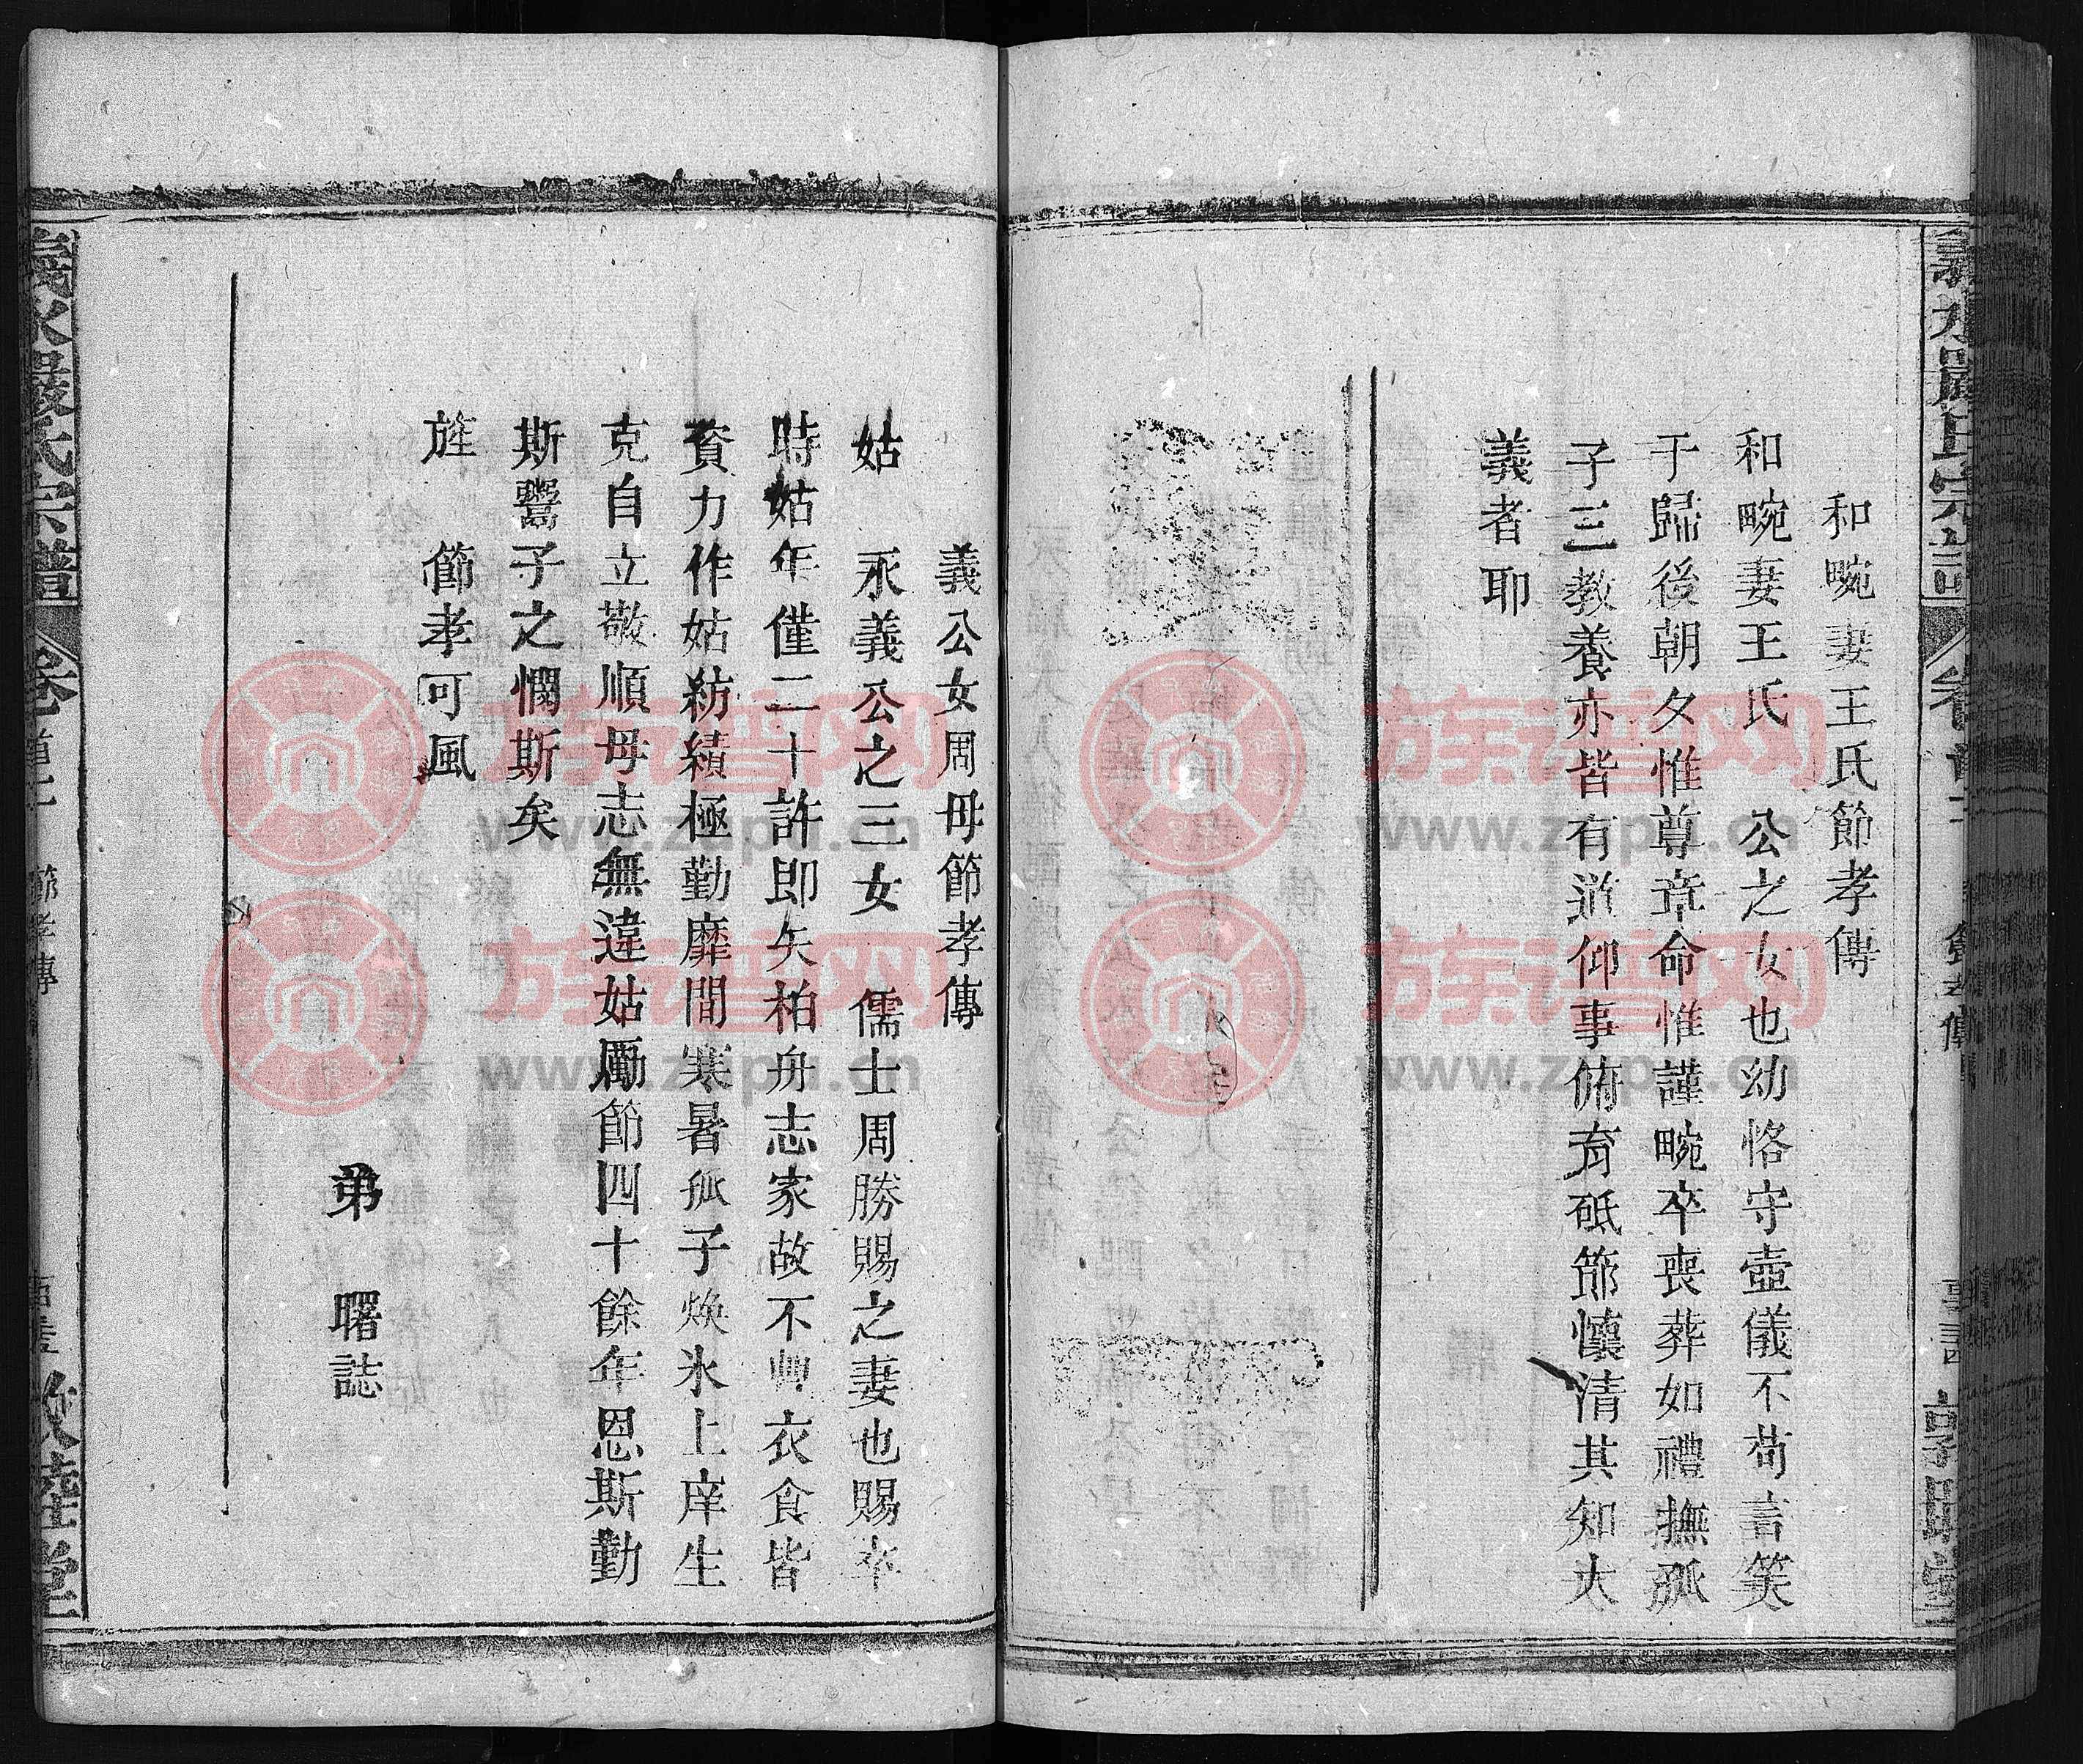 和畹妻王氏節孝傳
和畹妻王氏　公之女也幼恪守壺儀不苟言笑
于歸後朝夕惟尊章命惟謹畹卒喪葬如禮撫孤
子三教養亦皆有道仰事俯育砥節懷清其知大
義者耶
義公女周母節孝傳
姑　永義公之三女　儒士周勝賜之妻也賜卒
時姑年僅二十許即矢柏舟志家故不艸衣食皆
資力作姑紡績極勤靡間寒暑孤子煥氷上庠生
克自立敬順母志無違姑勵節四十餘年恩斯勤
斯鬻子之憫斯矣
旌　節孝可風
弟　曙誌
義水嚴氏宗譜
節孝傳
族谱网
www.zupu.cn
族谱网
www.zupu.cn
族谱网
www.zupu.cn
族谱网
www.zupu.cn